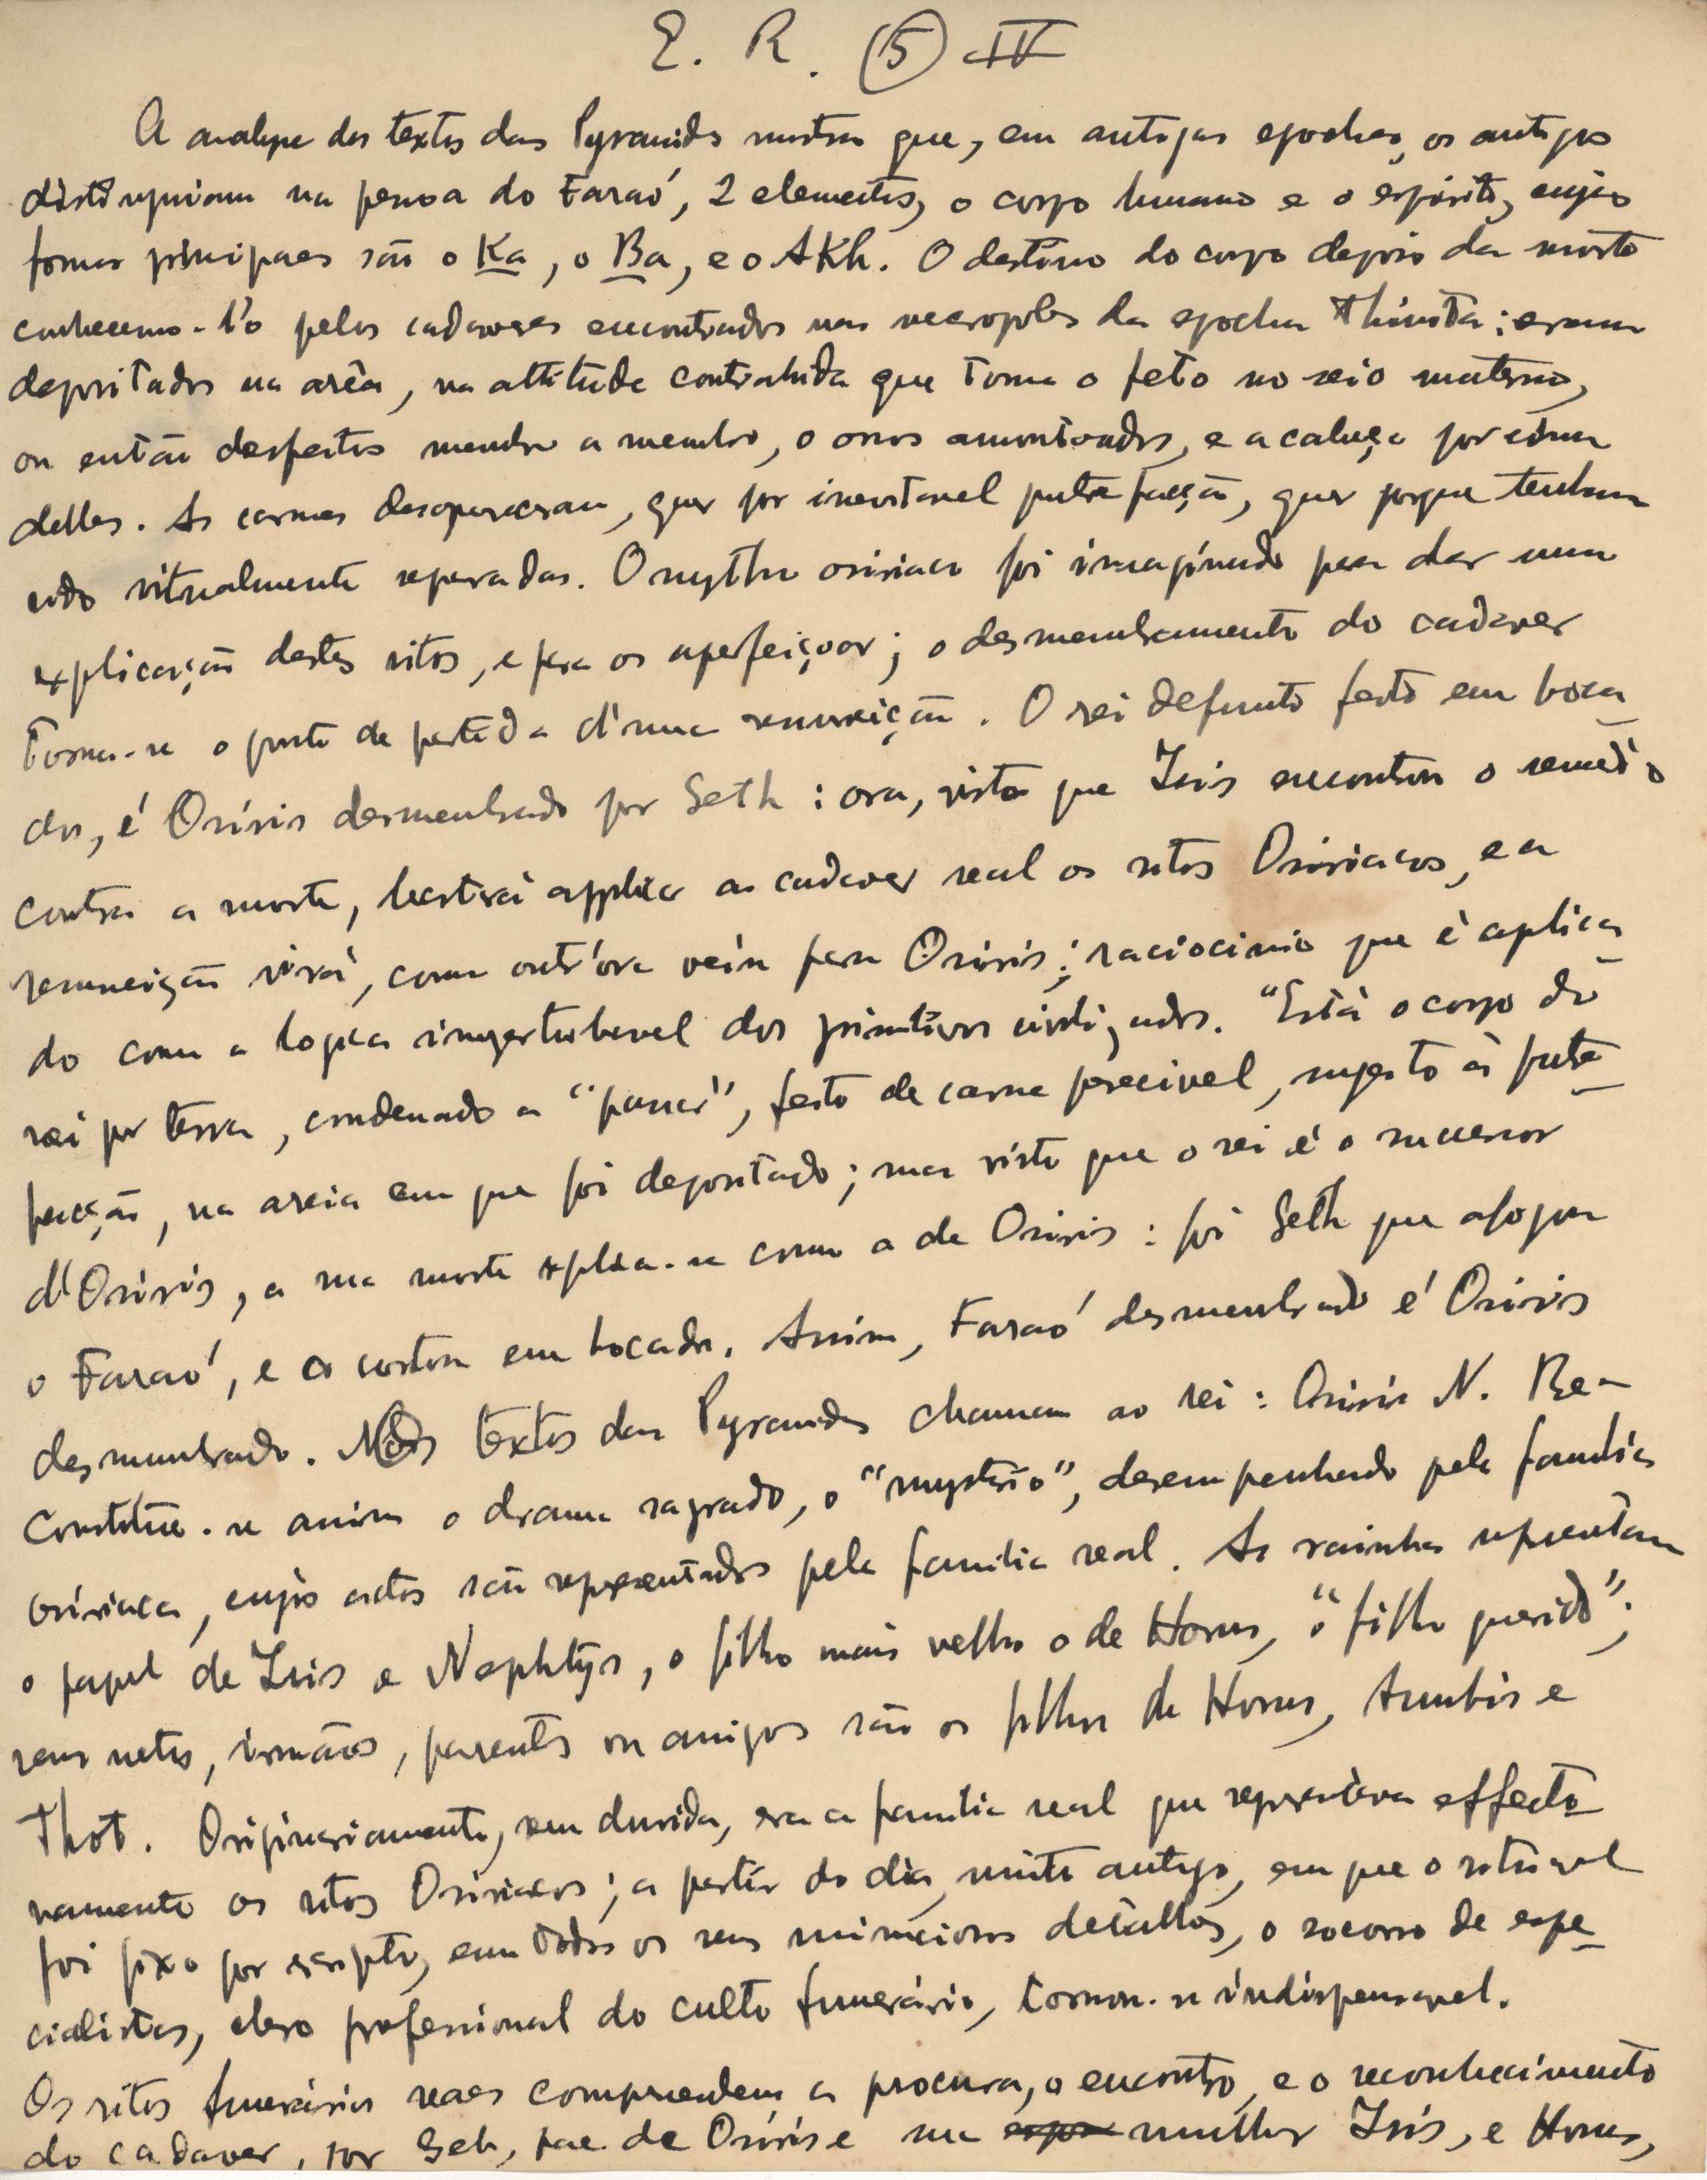 E. R. (5) IV
A analyse dos textos das Pyramides mostra que, em antigas epochas, os antigos
distinguiam na pessoa do Faraó, 2 elementos, o corpo humano e o espirito, cujas
formas principaes são o Ka, o Ba, e o AKh. O destino do corpo depois da morte
conhecemo-l'o pelos cadaveres encontrados nas necropoles da epocha Thinita: eram
depositados na arêa, na attitude contrahida que toma o feto no seio materno,
ou então desfeitos membro a membro, o ossos amontoados, e a cabeça por cima
delles. As carnes desappareceram, quer por inevitavel putrefacção, quer porque tenham
sido ritualmente separadas. O mytho osiriaco foi imaginado para dar uma
explicação destes ritos, e para os aperfeiçoar; o desmembramento do cadaver
torna-se o ponto de partida d'uma resurreição. O rei defunto feito em boca-
dos, é Osíris desmembrado por Seth: ora, visto que Isis encontrou o remedio
contra a morte, bastará applicar ao cadaver real os ritos Osiriacos, e a
resurreição virá, como outr'ora veiu para Osiris; raciocinio que é aplica-
do com a logica imperturbavel dos primitivos civilizados. "Está o corpo do
rei por terra, condenado a "passar", feito de carne perecivel, sugeito á putre-
facção, na areia em que foi depositado; mas visto que o rei é o successor
d'Osiris, a sua morte explica-se como a de Osiris: foi Seth que afogou
o Faraó, e o cortou em bocados. Assim, Faraó desmembrado é Osiris
desmembrado. Nos textos das Pyramides chamam ao rei: Osiris N. Re-
constitue-se assim o drama sagrado, o "mysterio", desempenhado pela familia
osiriaca, cujos actos são representados pela familia real. As rainhas representam
o papel de Isis e Nephtys, o filho mais velho o de Horus, "o filho querido";
seus netos, irmãos, parentes ou amigos são os filhos de Horus, Anubis e
Thot. Originariamente, sem duvida, era a familia real que representava effecti-
vamente os ritos Osiriacos; a partir do dia, muito antigo, em que o ritual
foi fixo por escripto, em todos os seus minuciosos detalhes, o socorro de espe-
cialistas, clero professional do culto funerário, tornou-se indispensavel.
Os ritos funerários reaes comprendem a procura, o encontro, e o reconhecimento
do cadaver, por Geb, pae de Osiris e sua mulher Isis, e Horus,